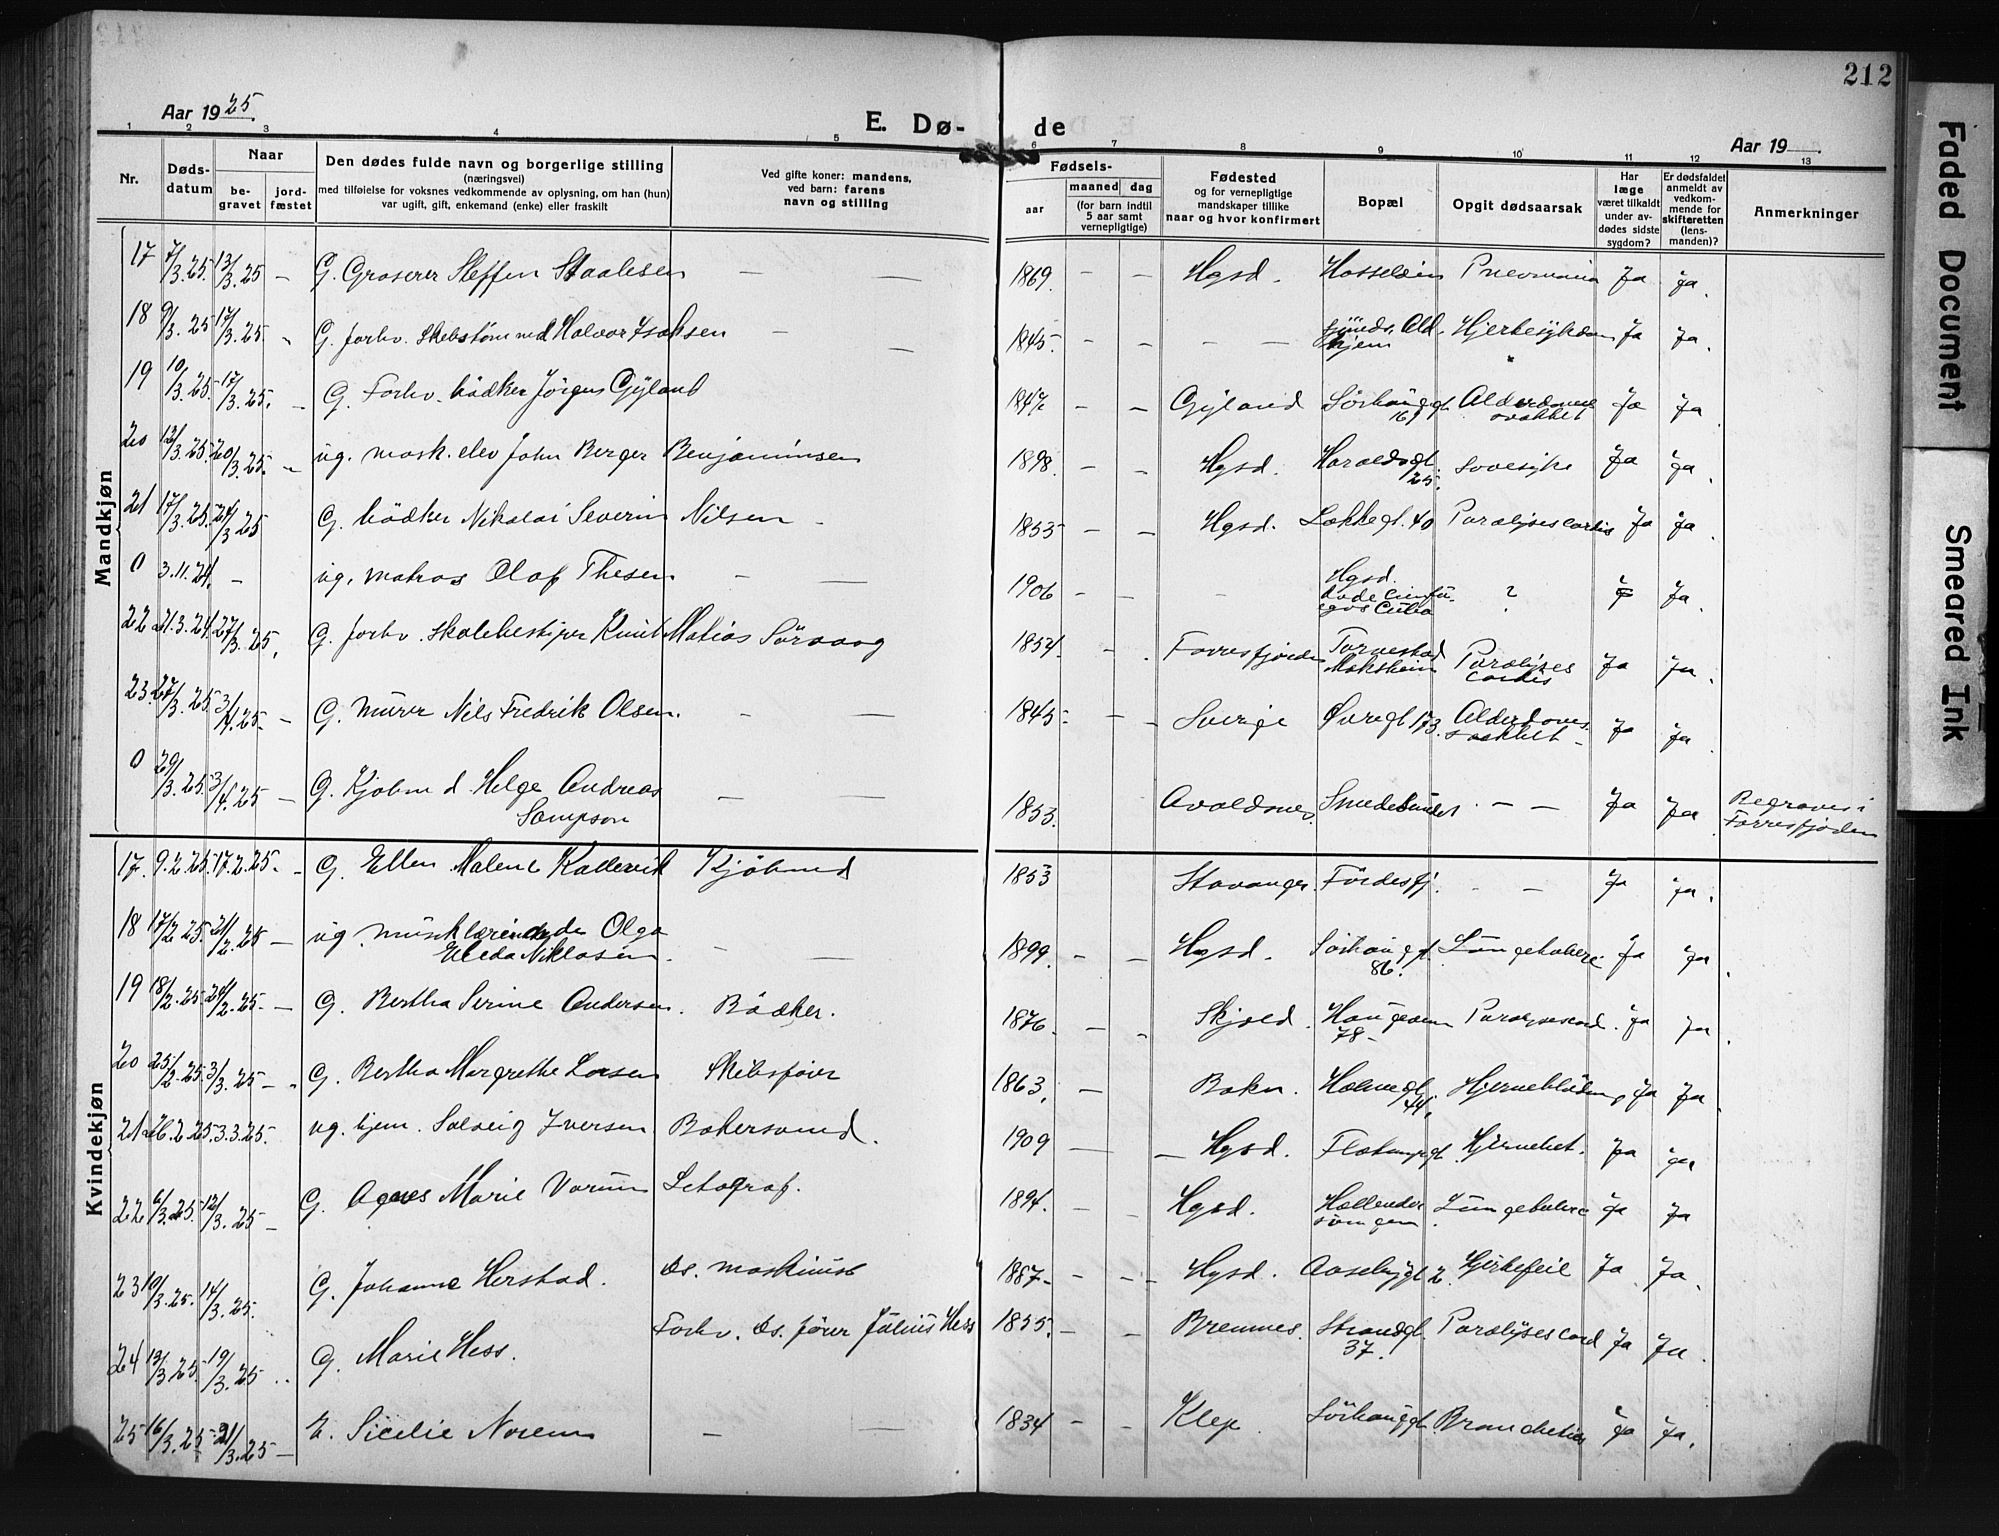 212
Aar 1925.
E. Dø-
de
Aar 19
1 2 3 4 5 6 7 8 9 10 11 12 13
Nr.
Døds-
datum
Naar
be-
gravet
jord-
fæstet
Den dødes fulde navn og borgerlige stilling
(næringsvei)
med tilføielse for voksnes vedkommende av oplysning, om han (hun)
var ugift, gift, enkemand (enke) eller fraskilt
Ved gifte koner: mandens,
ved barn: farens
navn og stilling
Fødsels-
aar
maaned dag
(for barn indtil
5 aar samt
vernepligtige)
Fødested
og for vernepligtige
mandskaper tillike
naar og hvor konfirmert
Bopæl
Opgit dødsaarsak
Har
læge
været tilkaldt
under av-
dødes sidste
sygdom?
Er dødsfaldet
anmeldt av
vedkom-
mende for
skifteretten
(lens-
manden)?
Anmerkninger
Mandkjøn
17 7/3.25. 13/3.25 — G. Groserer Steffen Staalesen — — 1869. — — Hgsd. Hasseløen Pneumonia Ja Ja.
18 9/3.25 17/3.25. G. forhv. Skibstømmerd Halvor Isaksen — — 1845. — — — — hjem Hjertesykdom Ja Ja.
19 10/3.25. 17/3.25. — G. Forhv. bødker Jørgen Gyland — — Gyland Sørhauggt 167 Alderdoms svakhet Ja Ja
20 12/3.25. 20/3.25. — ug. mask. elev John Berger Benjaminsen 1898. — — Hgsd. Haraldsgt. 125. Sovesyke Ja Ja.
21 17/3.25. 24/3 25 G. bødker Nikolai Severin Nilsen — 1853 — — Hgsd. Løkkegt. 40 Paralyses cordis Ja Ja.
0 3.11.24. — ug. matros Olaf Thesen — — 1906 — — — Hgsd. døde Cienfuegos Cuba ? Ja.
22 21.3.24. 27/3.25. G. forhv. skolebestyrer Knut Matias Sørvaag 1854. — . Førresfjorden Paralyses cordis Ja Ja.
23. 27/3.25. 3/4.25. — G. Murer Nils Fredrik Olsen. — — 1845. — — Sverige Øvregt 173. Alderdoms svakhet — Ja Ja.
0 29/3.25. 3/4.25 — G. Kjøbmd Helge Andreas
Sampson — — 1853. Avaldsnes. Smedesundet — — Ja Ja. Begraves i
Førresfjorden
Kvindekjøn
17. 9.2.25. 17.2.25. — G. Ellen Malene Kallevik Kjøbmd 1853 Stavanger. Førdesfj. — — Ja Ja.
18 17/2 25. 21/2.25 — ug. musiklærerinde Olga
Nilsen. — — 1899. — — Hgsd. Sørhauggt 86. Lungetuberc. Ja Ja.
19 18/2.25. 24/2.25. — G. Bertha Serine Andersen. Bødker. 1876. — — Skjold. Haugeveien 78 — Paralyses cord. Ja Ja.
20 25/2.25. 3/3.25. — G. Bertha Margrethe Larsen Skibsfører 1863. — Bokn. 44. Hjerneblødning Ja Ja.
21 26.2.25. 3.3.25. ug. hjem. Solveig Iversen Bakersvend. 1909 — — Hgsd. Flotmyrgt Hjernehet. Ja Ja
22 6/3.25. 12/3.25 — G. Agnes Marie Vorum Litograf. 1894. — — Hgsd. Lungetuberc Ja Ja
23 10/3.25. 14/3.25. G. Johanne Herstad. ds. maskinist 1887 — — — Hgsd. Aasebygt 2. Hjertefeil Ja Ja.
24 13/3.25. 19/3.25 .. G. Marie Hess. Forhv. ds. fører Julius Hess 1855. — — Bremnes. Strandgt 37. Paralyses cord Ja Ja.
25 16/3.25. 21/3.25 — E. Sicilie Norem — — 1834 — — Klep Sørhauggt Bronchetis Ja Ja.
Faded Document
Smeared Ink